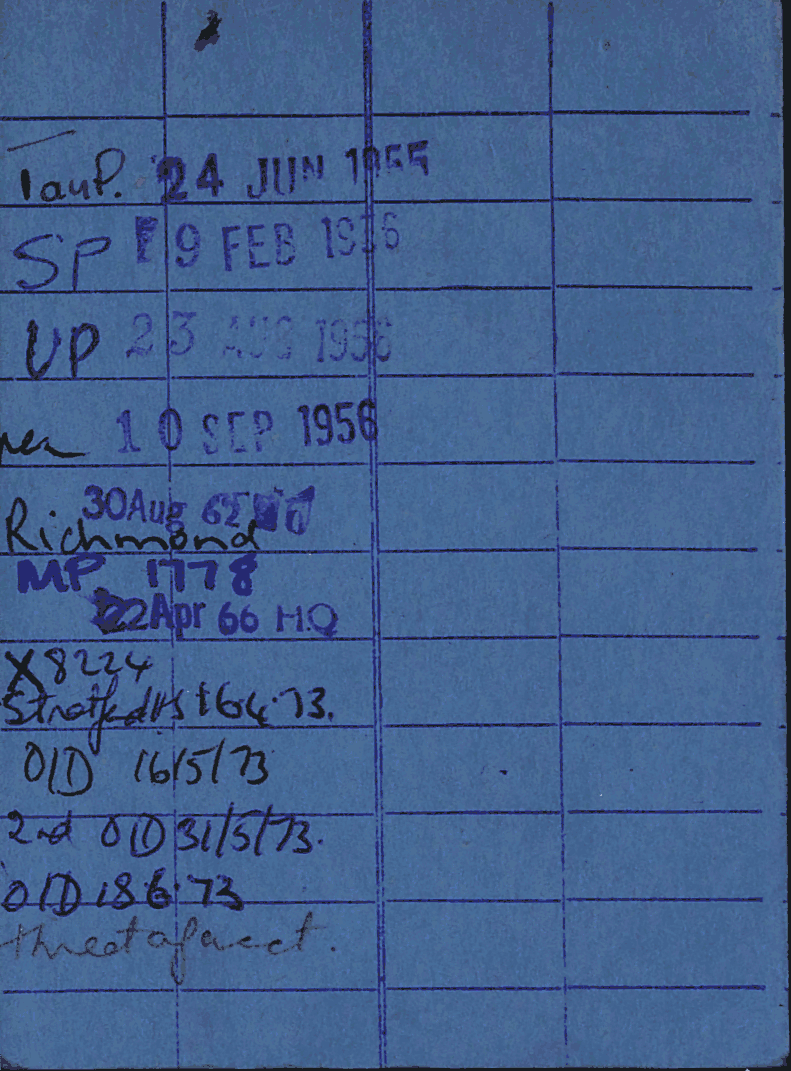 TauP. 24 JUN 1955
SP 9 FEB 1956
UP 23 AUG 1956
10 SEP 1956
30Aug 62
Richmond
MP 1778
22Apr 66 H.Q
X8224
16.4.73.
O/D 16/5/73
2nd O/D 31/5/73.
O/D 18.6.73
threat of acct.